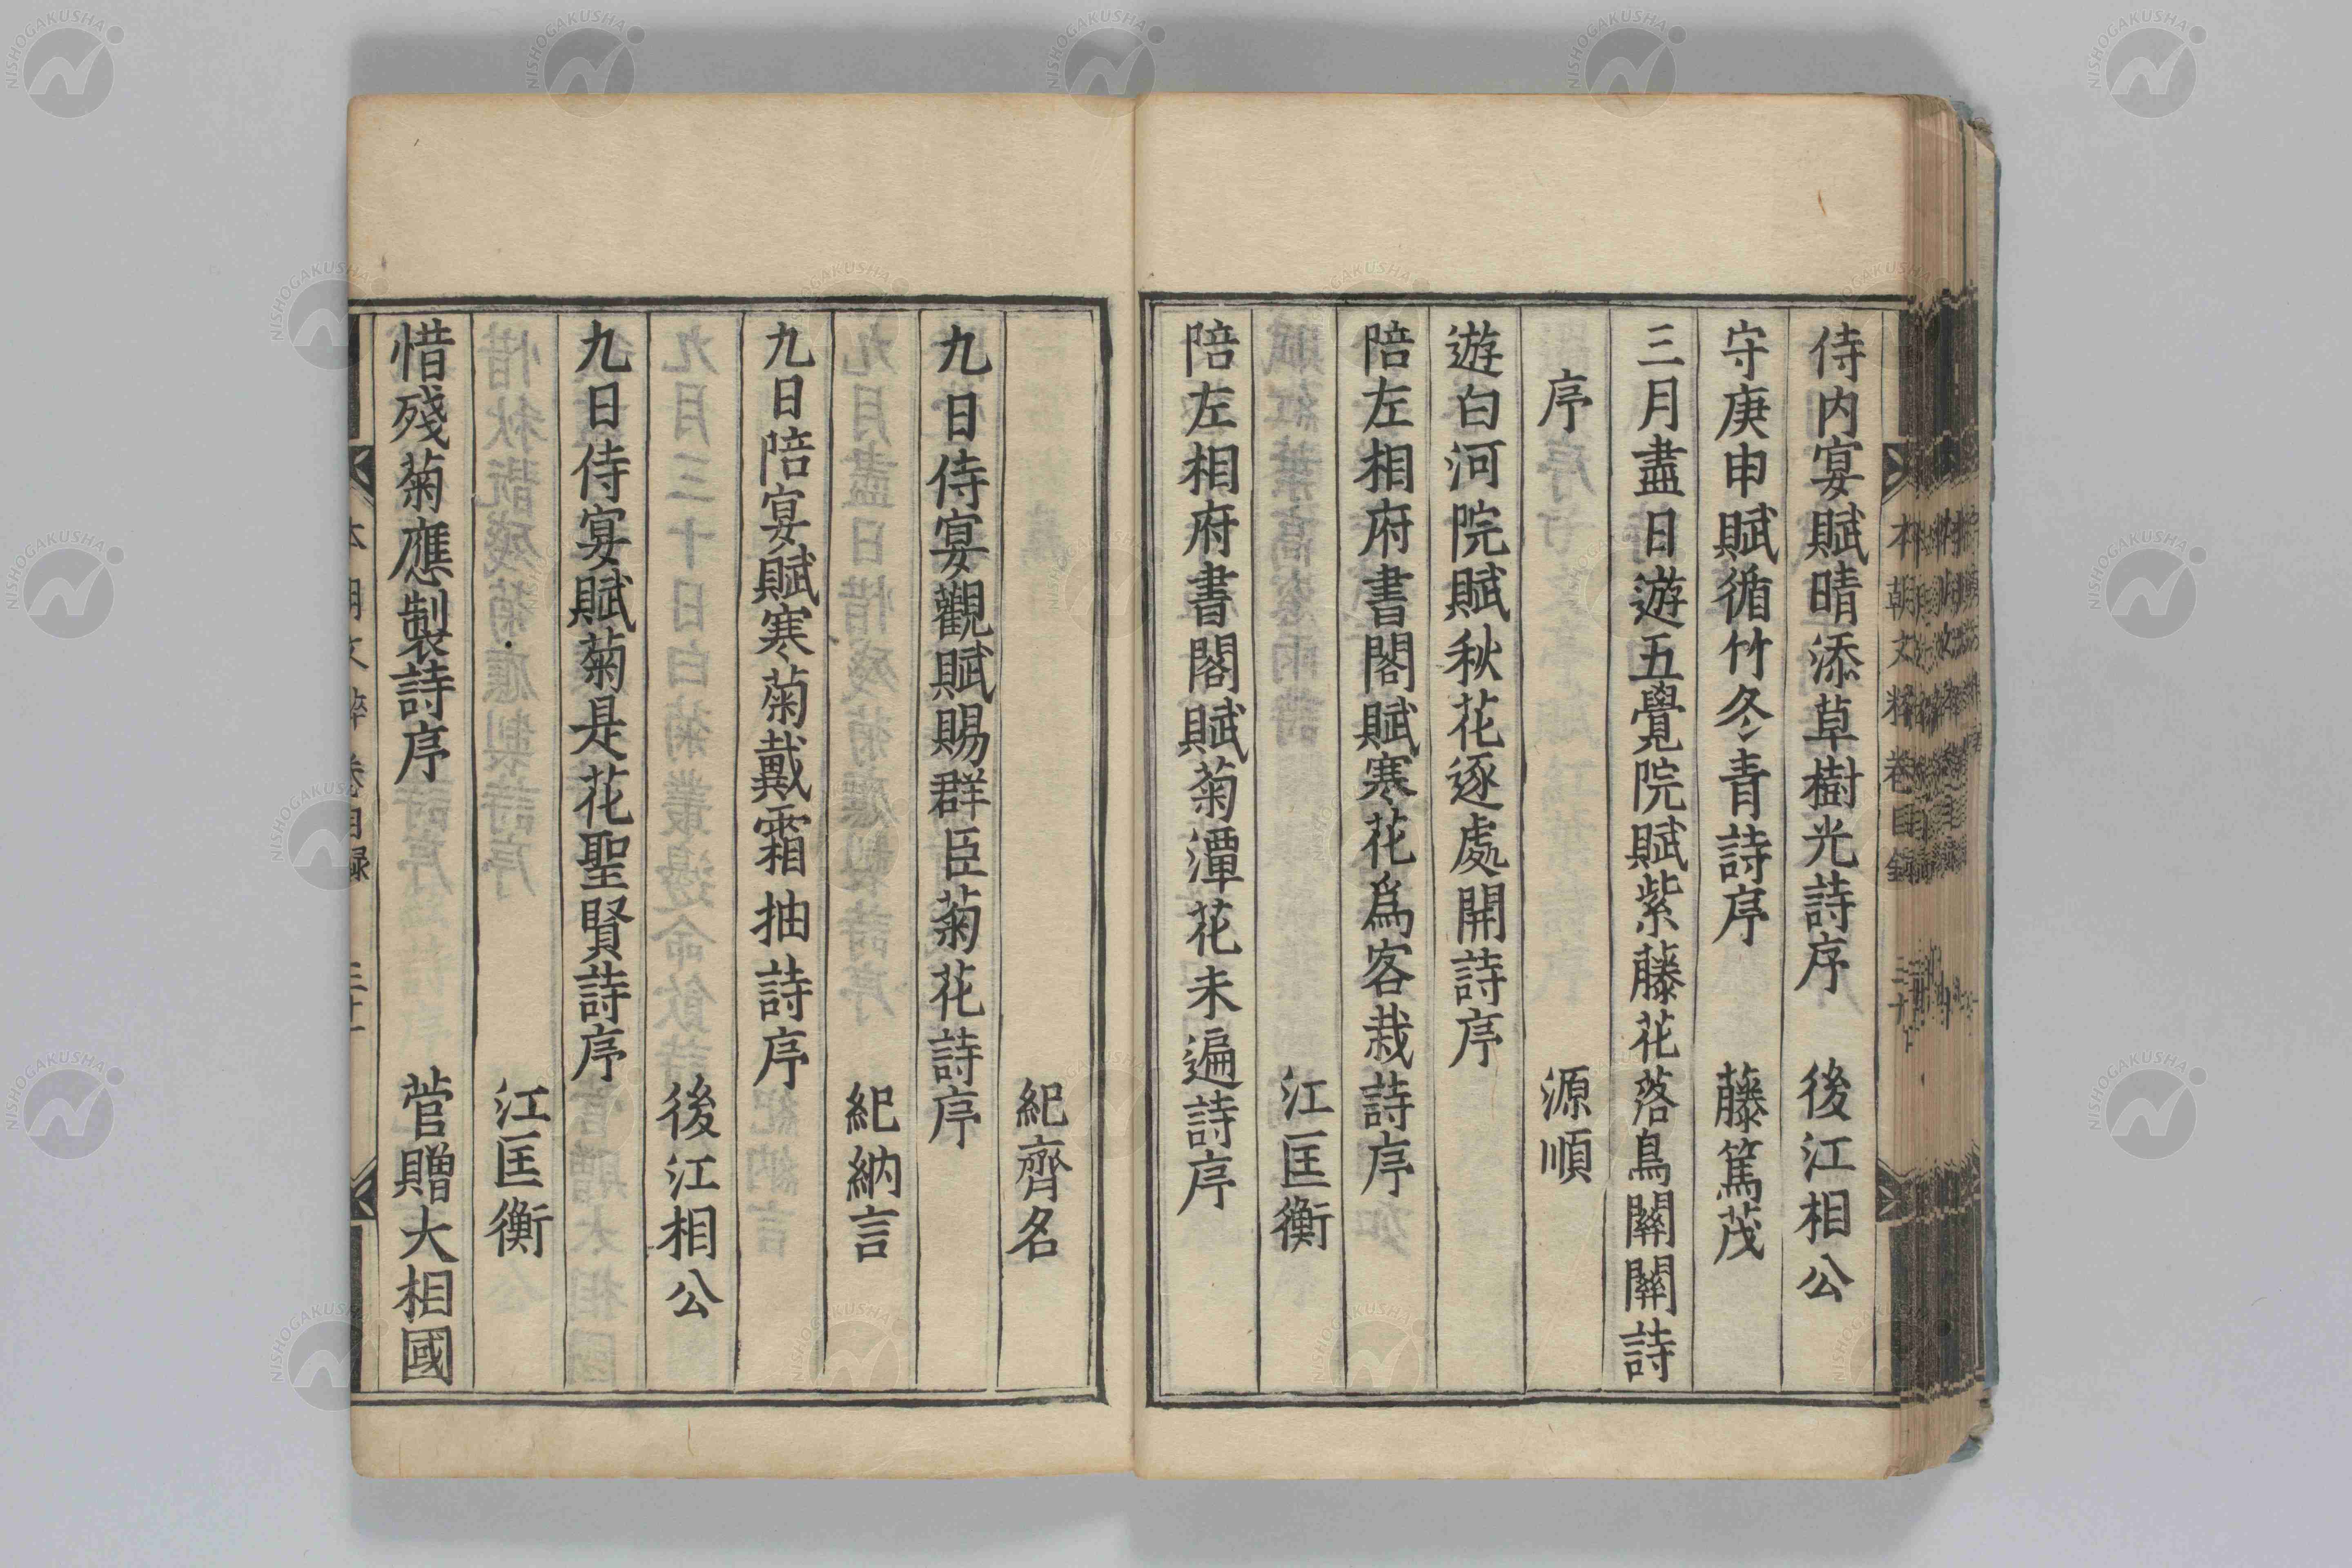 侍内宴賦晴添草樹光詩序 後江相公
守庚申賦循竹冬青詩序 藤篤茂
三月盡日遊五覺院賦紫藤花落鳥關關詩
序 源順
遊白河院賦秋花逐處開詩序
陪左相府書閣賦寒花爲客栽詩序
江匡衡
陪左相府書閣賦菊潭花未遍詩序
本朝文粹卷目錄 三十
紀齊名
九日侍宴觀賦賜群臣菊花詩序
紀納言
九日陪宴賦寒菊戴霜抽詩序
後江相公
九日侍宴賦菊是花聖賢詩序
江匡衡
惜殘菊應製詩序 菅贈大相國
NISHOGAKUSHA